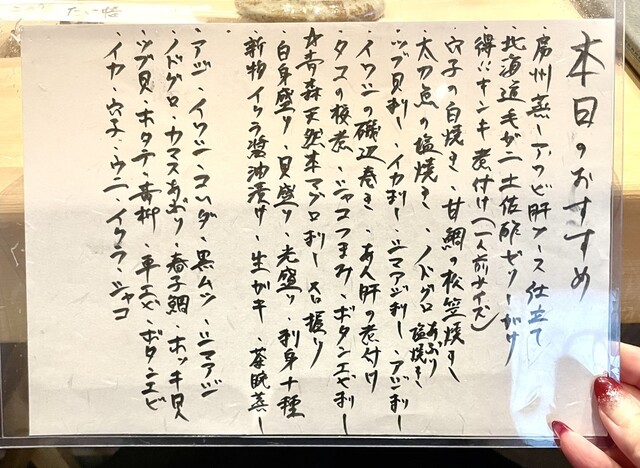 本日のおすすめ
・房州蒸しアワビ肝ソース仕立て
・北海道毛ガニ土佐酢ゼリーがけ
・得!!キンキ煮付け(一人前サイズ)
・穴子の白焼き・甘鯛の松笠焼き
・太刀魚の塩焼き・ノドグロあぶり塩焼き
・ツブ貝刺し・イカ刺し・シマアジ刺し・アジ刺し
・イワシの磯辺巻き・あん肝の煮付け
・タコの桜煮・シャコつまみ・ボタンエビ刺し
☆青森天然本マグロ刺し 又は握り
・白身盛り・貝盛り・光盛り・刺身十種
・新物イクラ醤油漬け・生ガキ・茶碗蒸し
・アジ・イワシ・コハダ・黒ムツ・シマアジ
・ノドグロ・カマスあぶり・春子鯛・ホッキ貝
・ツブ貝・ホタテ・青柳・車エビ・ボタンエビ
・イカ・穴子・ウニ・イクラ・シャコ